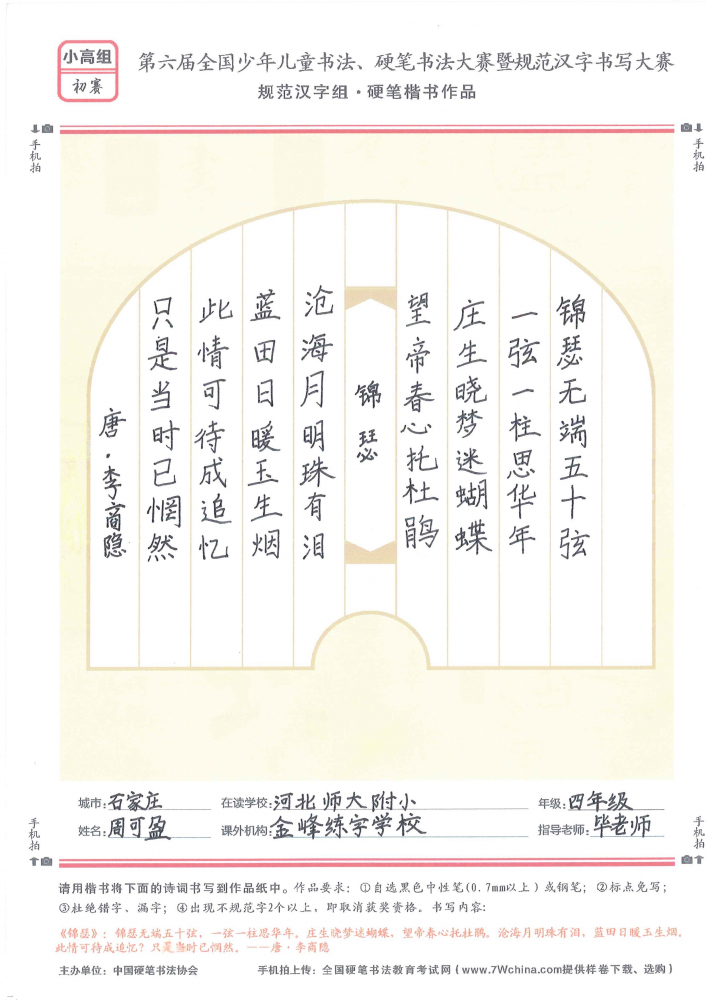 小高组
初赛
第六届全国少年儿童书法、硬笔书法大赛暨规范汉字书写大赛
规范汉字组·硬笔楷书作品
手机拍
手机拍
锦瑟无端五十弦
一弦一柱思华年
庄生晓梦迷蝴蝶
望帝春心托杜鹃
锦瑟
沧海月明珠有泪
蓝田日暖玉生烟
此情可待成追忆
只是当时已惘然
唐·李商隐
城市:石家庄 在读学校:河北师大附小 年级:四年级
姓名:周可盈 课外机构:金峰练字学校 指导老师:毕老师
手机拍
手机拍
请用楷书将下面的诗词书写到作品纸中。作品要求:①自选黑色中性笔(0.7mm以上)或钢笔;②标点免写;
③杜绝错字、漏字;④出现不规范字2个以上,即取消获奖资格。书写内容:
《锦瑟》:锦瑟无端五十弦,一弦一柱思华年。庄生晓梦迷蝴蝶,望帝春心托杜鹃。沧海月明珠有泪,蓝田日暖玉生烟。
此情可待成追忆?只是当时已惘然。——唐·李商隐
主办单位:中国硬笔书法协会 手机拍上传:全国硬笔书法教育考试网(www.7Wchina.com提供样卷下载、选购)